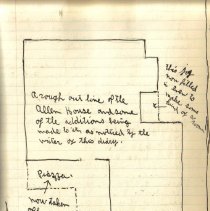 A rough out line of the
Allen House and some
of the additions being
made to it as noticed by the
writer of this diary.
this jog
now filled
in to
make some
of a room
Piazza
now taken
off